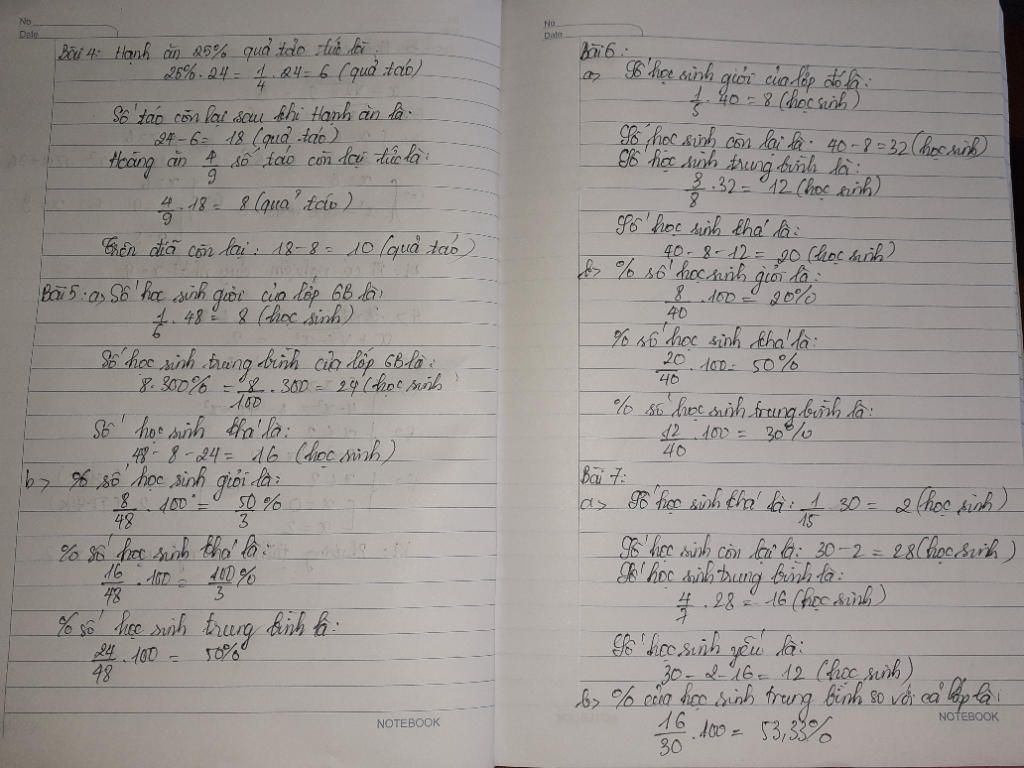 No
Date
Bài 4: Hạnh ăn 25% quả táo tức là:
25% . 24 = 1/4 . 24 = 6 (quả táo)
Số táo còn lại sau khi Hạnh ăn là:
24 - 6 = 18 (quả táo)
Hoàng ăn 4/9 số táo còn lại tức là:
4/9 . 18 = 8 (quả táo)
Trên đĩa còn lại: 18 - 8 = 10 (quả táo)
Bài 5: a> Số học sinh giỏi của lớp 6B là:
1/6 . 48 = 8 (học sinh)
Số học sinh trung bình của lớp 6B là:
8 . 300% = 8/100 . 300 = 24 (học sinh
Số học sinh khá là:
48 - 8 - 24 = 16 (học sinh)
b> % số học sinh giỏi là:
8/48 . 100 = 50/3 %
% số học sinh khá là:
16/48 . 100 = 100/3 %
% số học sinh trung bình là:
24/48 . 100 = 50%
NOTEBOOK
No
Date
Bài 6:
a> Số học sinh giỏi của lớp đó là:
1/5 . 40 = 8 (học sinh)
Số học sinh còn lại là: 40 - 8 = 32 (học sinh)
Số học sinh trung bình là:
3/8 . 32 = 12 (học sinh)
Số học sinh khá là:
40 - 8 - 12 = 20 (học sinh)
b> % số học sinh giỏi là:
8/40 . 100 = 20%
% số học sinh khá là:
20/40 . 100 = 50%
% số học sinh trung bình là:
12/40 . 100 = 30%
Bài 7:
a> Số học sinh khá là: 1/15 . 30 = 2 (học sinh)
Số học sinh còn lại là: 30 - 2 = 28 (học sinh)
Số học sinh trung bình là:
4/7 . 28 = 16 (học sinh)
Số học sinh yếu là:
30 - 2 - 16 = 12 (học sinh)
b> % của học sinh trung bình so với cả lớp là:
16/30 . 100 = 53,33%
NOTEBOOK